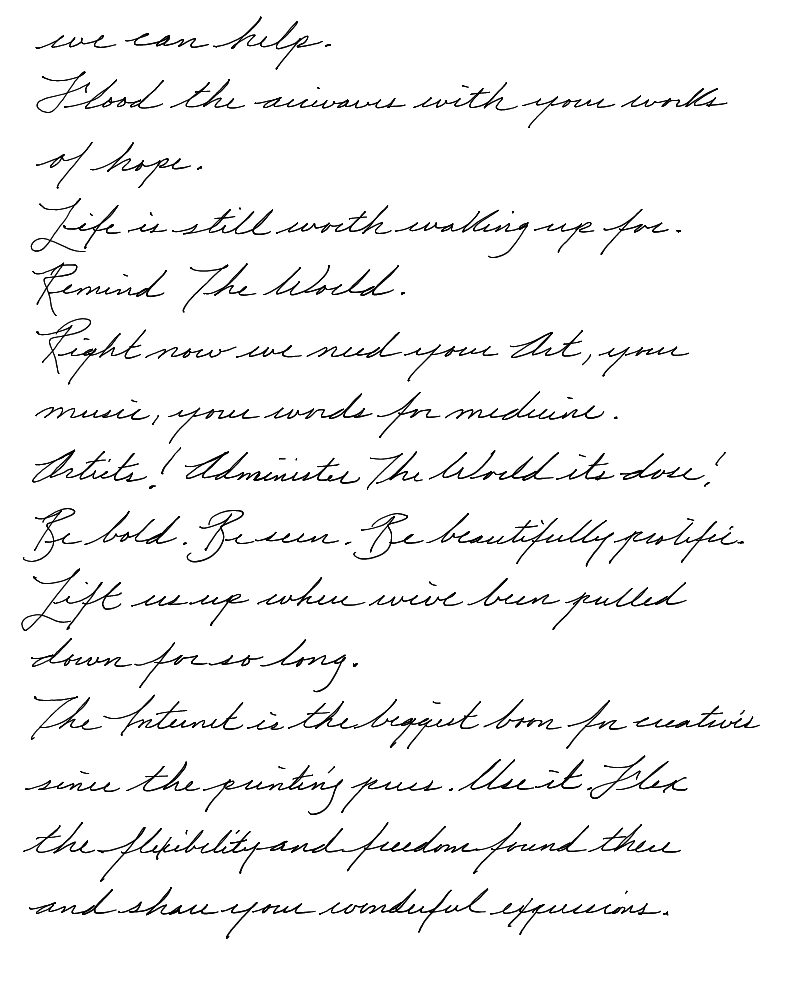 we can help.
Flood the airwaves with your works
of hope.
Life is still worth waking up for.
Remind The World.
Right now we need your Art, your
music, your words for medicine.
Artists! Administer The World its dose!
Be bold. Be seen. Be beautifully prolific.
Lift us up where we've been pulled
down for so long.
The Internet is the biggest boon for creatives
since the printing press. Use it. Flex
the flexibility and freedom found there
and share your wonderful expressions.